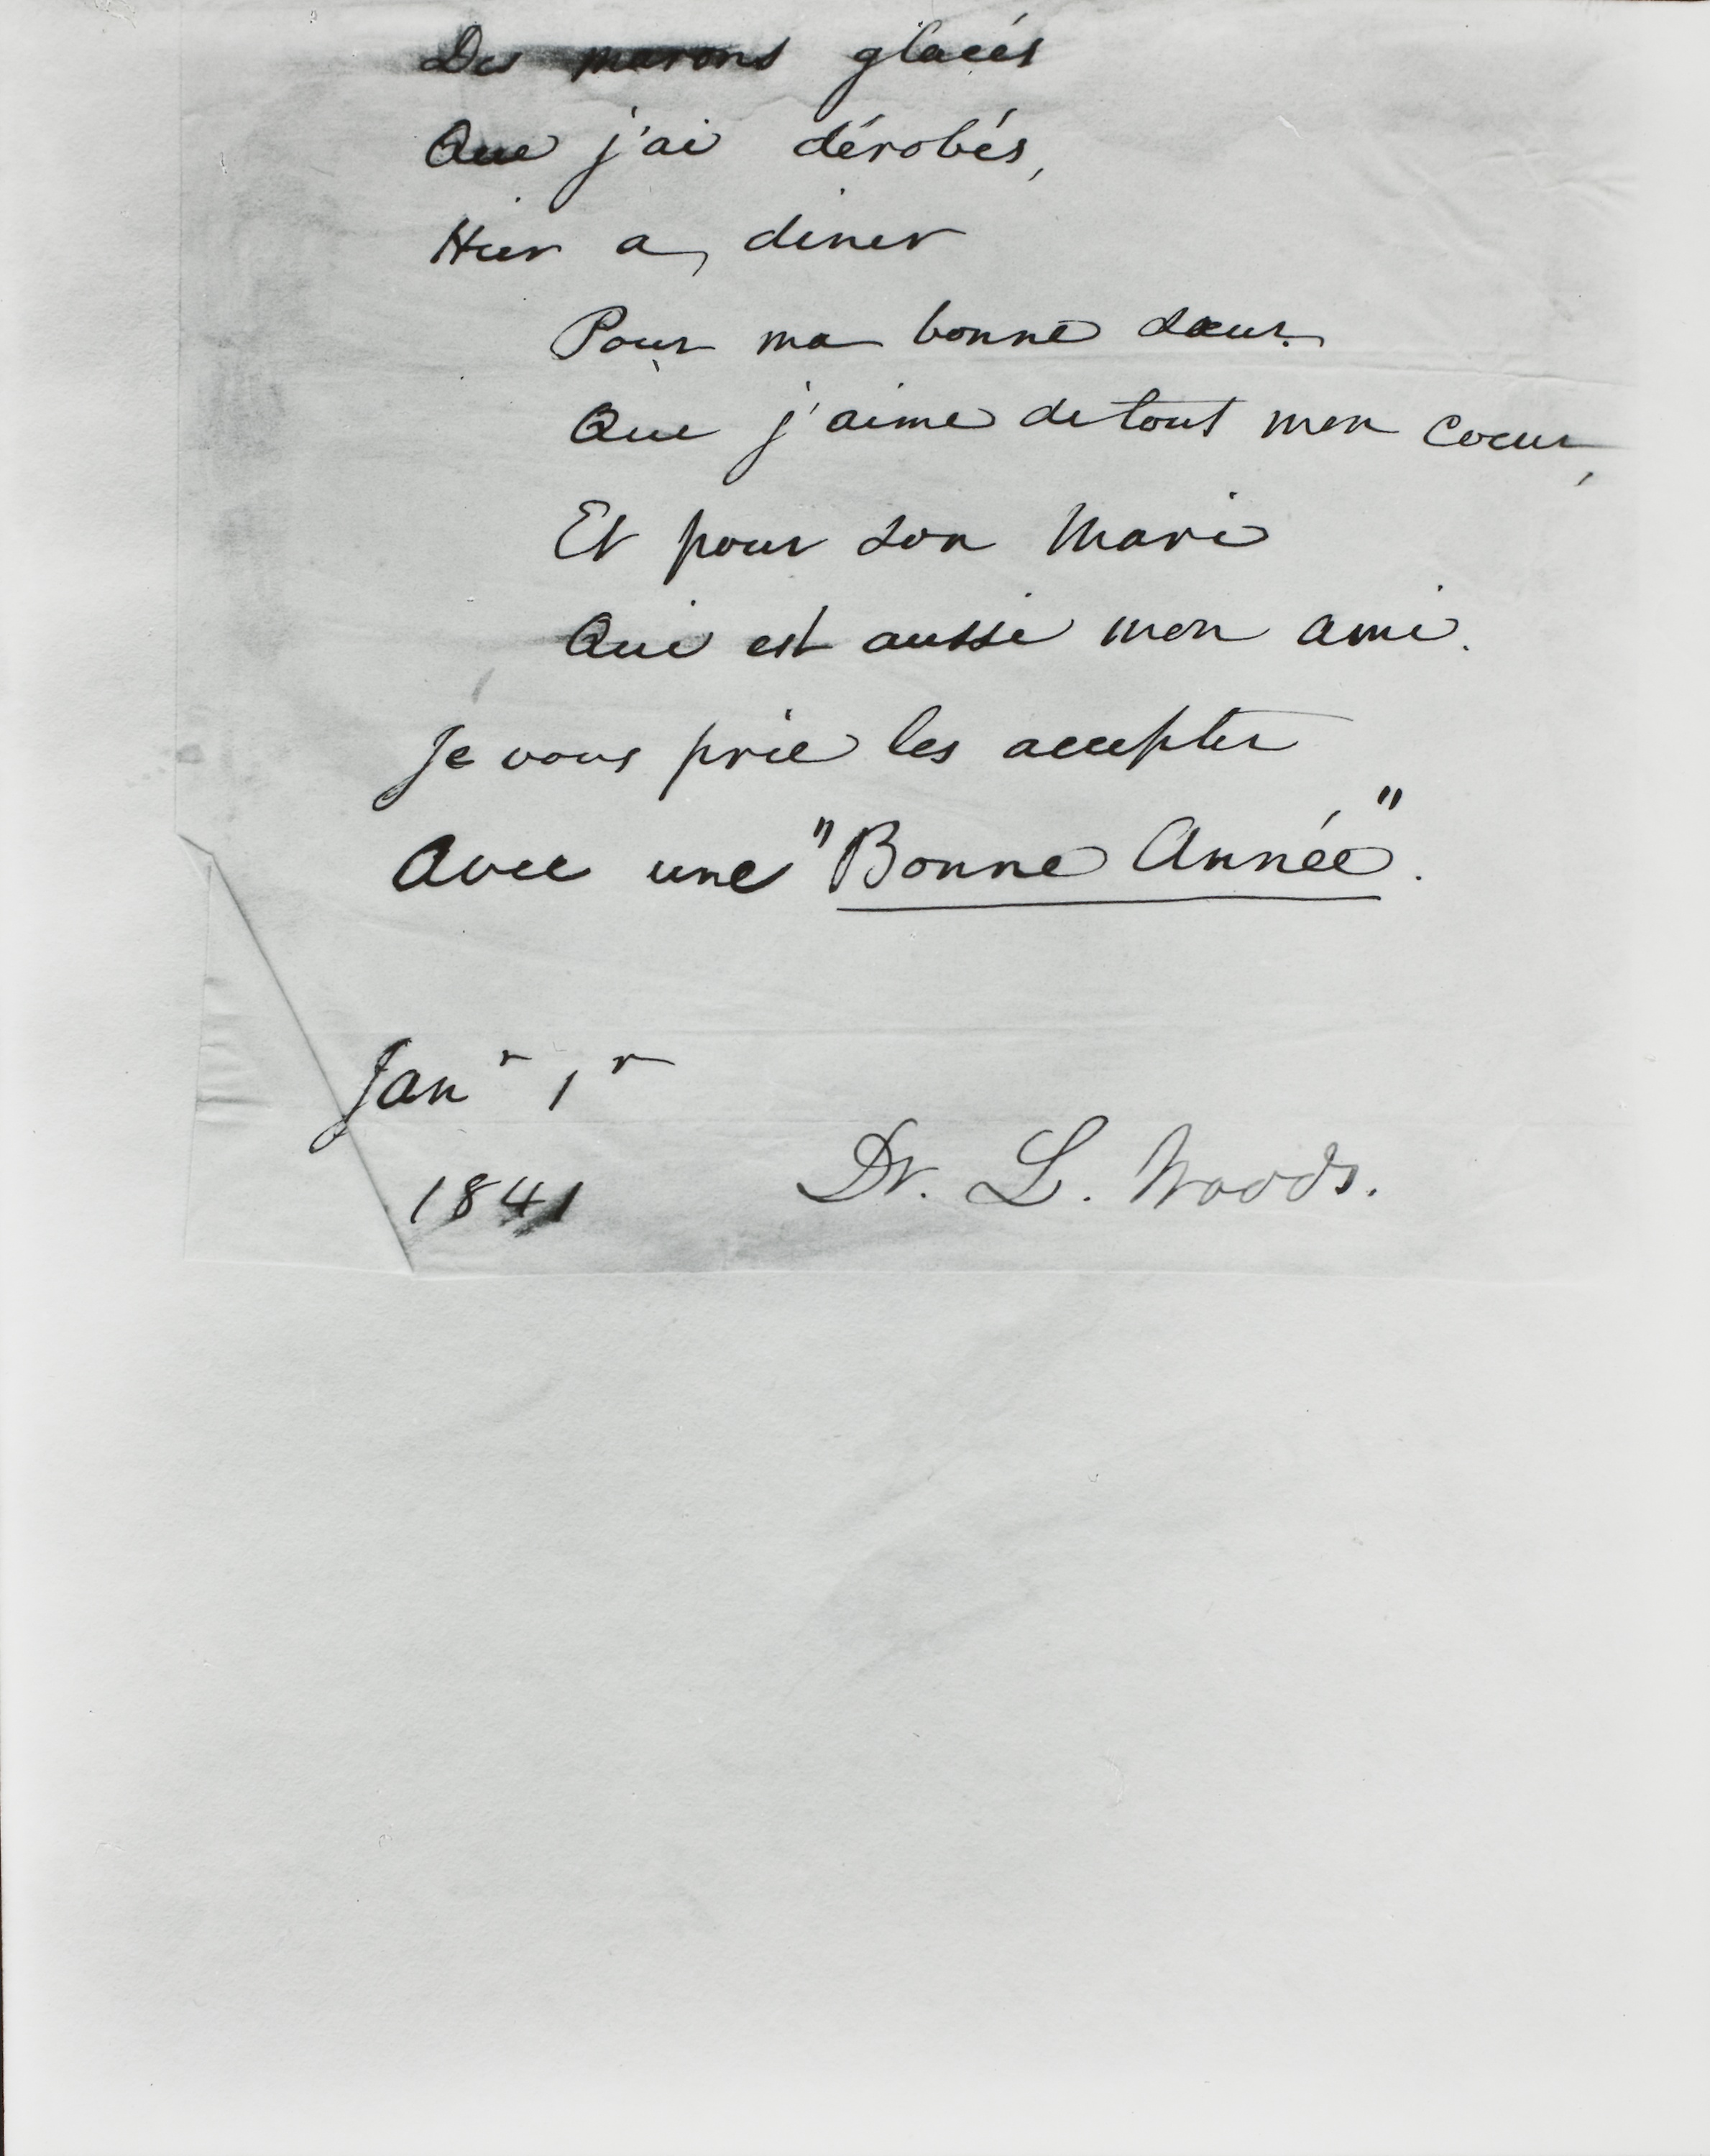 Des marons glacés
Que j'ai dérobés,
Hier a, diner
Pour ma bonne sœur.
Que j'aime de tout mon coeur,
Et pour son Mari
Qui est aussi mon ami.
Je vous prie les accepter
Avec une "Bonne Année".
Janr 1r
1841
Dr. L. Woods.